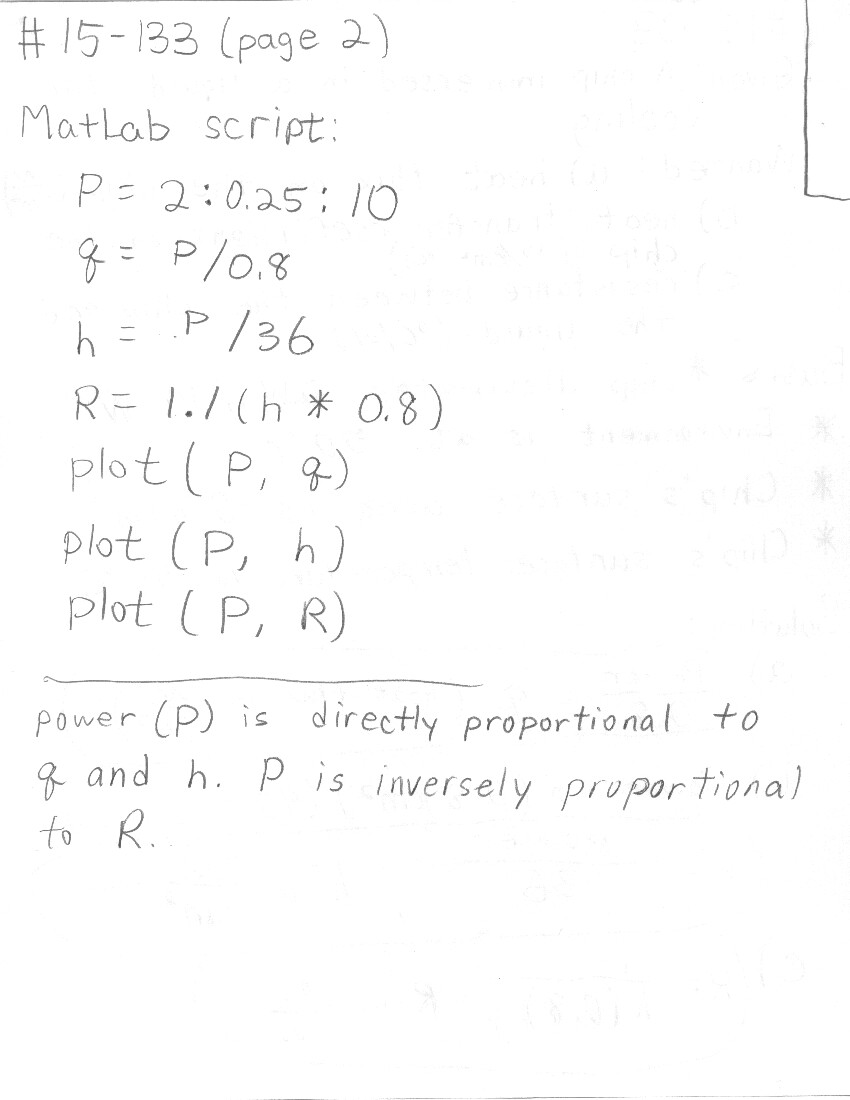 # 15-133 (page 2)
MatLab script:
P = 2:0.25:10
q = P/0.8
h = P/36
R = 1./(h * 0.8)
plot(P, q)
plot (P, h)
plot (P, R)
power (P) is directly proportional to
q and h. P is inversely proportional
to R.